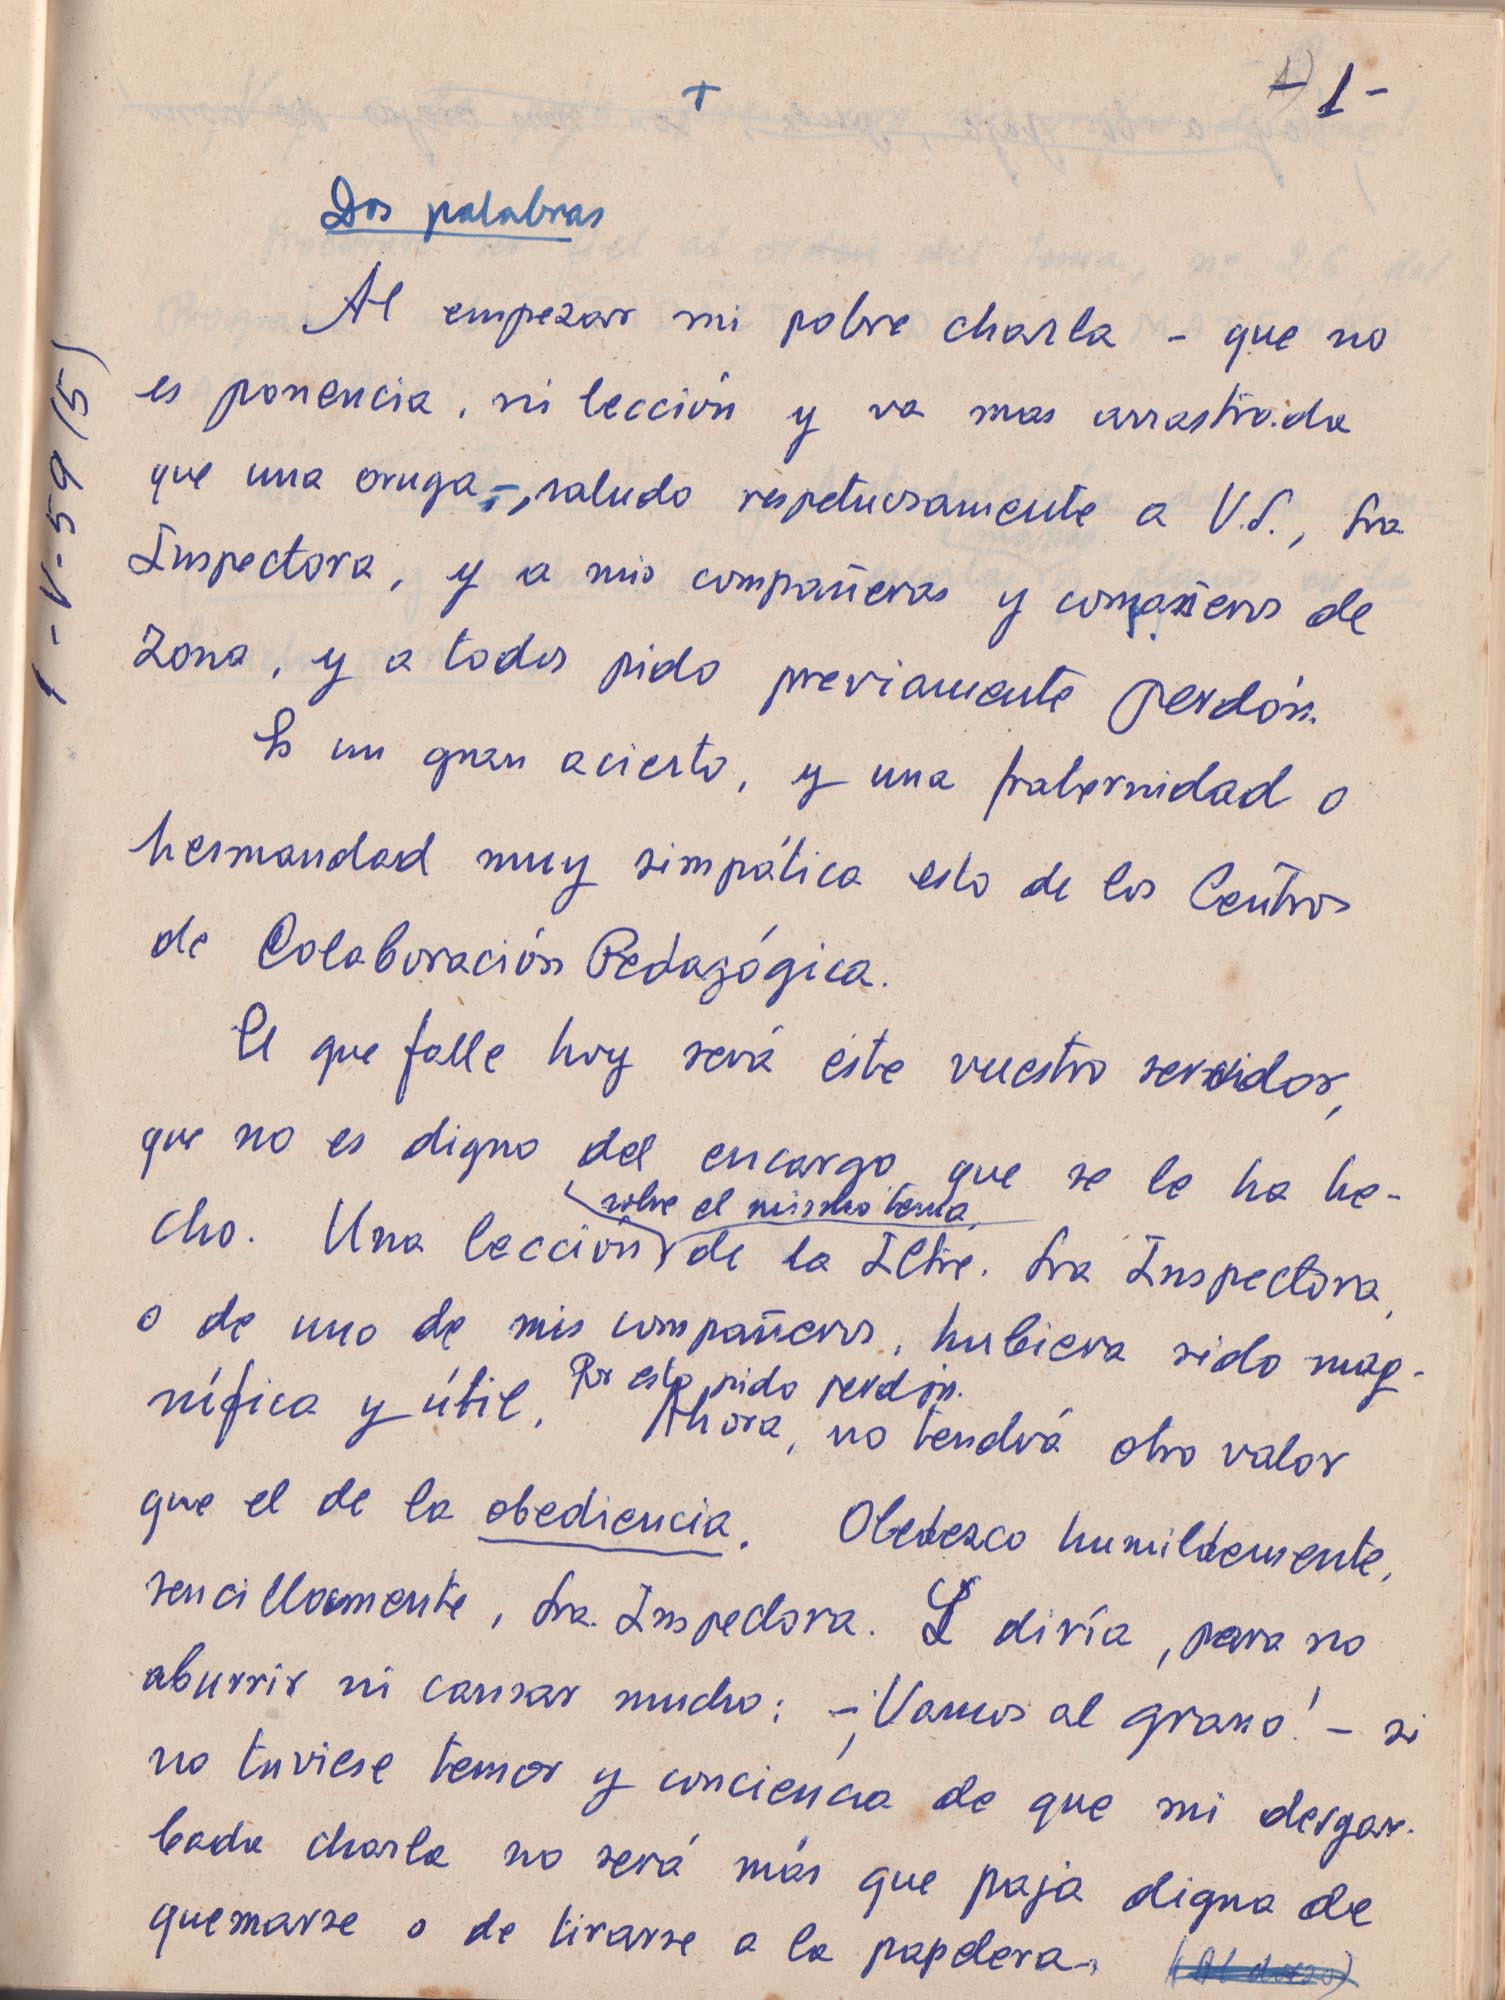 - 1 -
+
Dos palabras
Al empezar mi pobre charla - que no
es ponencia, ni lección y va mas arrastrada
que una oruga -, saludo respetuosamente a V.S., Sra
Inspectora, y a mis compañeras y compañeros de
Zona, y a todos pido previamente perdón.
Es un gran acierto, y una fraternidad o
hermandad muy simpática esto de los Centros
de Colaboración Pedagógica.
El que falle hoy será éste vuestro servidor,
que no es digno del encargo que se le ha he-
sobre el mismo tema,
cho. Una lección de la Iltre. Sra Inspectora,
o de uno de mis compañeros, hubiera sido mag-
nífica y útil. Por esto pido perdón. Ahora, no tendrá otro valor
que el de la obediencia. Obedezco humildemente,
sencillamente, Sra. Inspectora. diría, para no
aburrir ni cansar mucho: -¡Vamos al grano!- si
no tuviese temor y conciencia de que mi desgar-
bada charla no será más que paja digna de
quemarse o de tirarse a la papelera. (Al dorso)
1-V-59 (5)